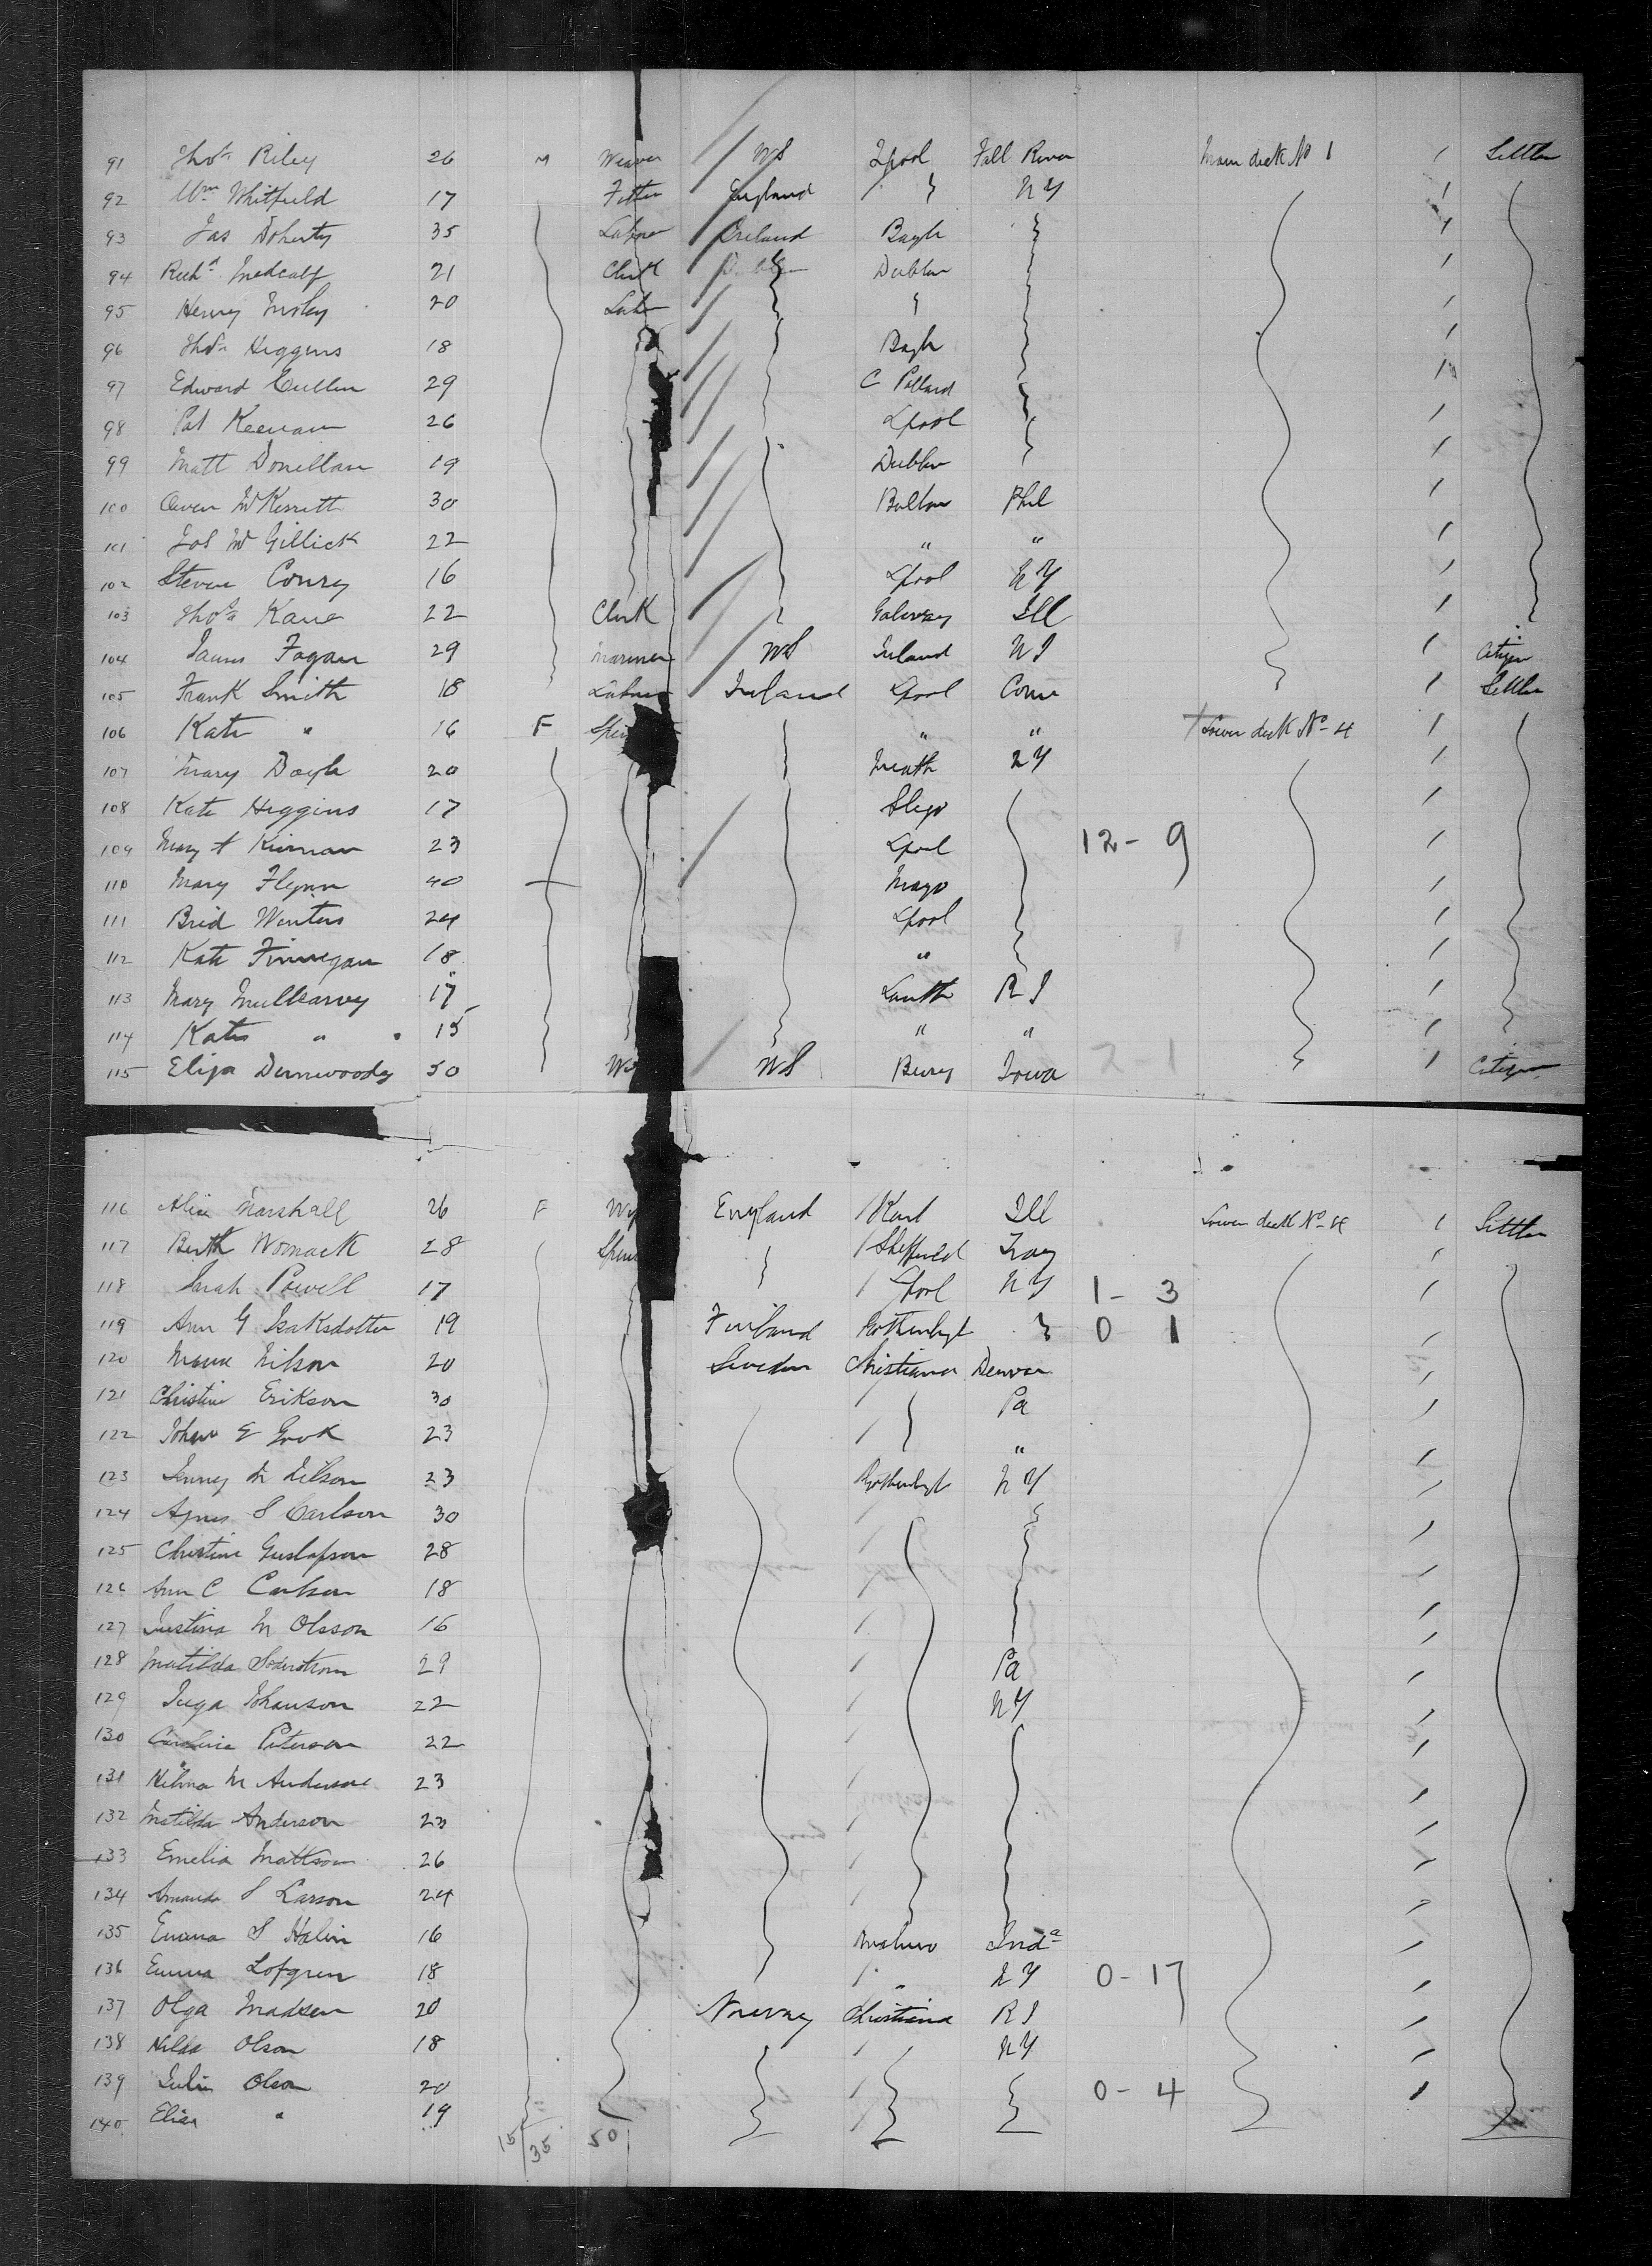 91 Thos Riley 26 M Weaver US Lpool Fall River Main deck No 1 / Settler
92 Wm Whitfield 17 Fitter England } NY /
93 Jas Doherty 35 Labor Ireland Boyle /
94 Richd Medcalf 21 Clerk Dublin /
95 Henry 20 Labor /
96 Thos Higgins 18 Boyle /
97 Edward Cullen 29 C Pollard /
98 Pat Keenan 26 Lpool /
99 Matt Donellan 19 Dublin /
100 Owen 30 Bolton Phil /
101 Jos McGillick 22 " " /
102 Steven Conry 16 Lpool NY /
103 Thos Kane 22 Clerk Galway Ill /
104 James Fagan 29 Mariner US Ireland NJ / Citizen
105 Frank Smith 18 Labour Ireland Lpool Conn / Settler
106 Kate " 16 F Spin " " Lower deck No 4 /
107 Mary Doyle 20 Meath NY /
108 Kate Higgins 17 Sligo /
109 Mary A Kiernan 23 Lpool 12 - 9 /
110 Mary Flynn 40 Mayo /
111 Brid Winters 24 Lpool /
112 Kate Finnegan 18 " /
113 Mary Mulkearvey 17 Louth R I /
114 Kate " 15 " " /
115 Eliza Dunwoody 50 W US Bury Iowa 2 - 1 / Citizen
116 Alice Marshall 26 F W England Ill Lower deck No 4 / Settler
117 Berth Womack 28 Spin Sheffield Troy /
118 Sarah Powell 17 Lpool NY 1 - 3 /
119 Ann G Isaksdotter 19 Finland Gothenbgt 0 1 /
120 Nilson 20 Sweden Christiana Denver /
121 Christine Erikson 30 Pa /
122 23 " /
123 Jenny M Nilson 23 Gothenbgt NY /
124 Agnes S Carlson 30 /
125 Christine Gustafson 28 /
126 Ann C Carlson 18 /
127 Justina M Olsson 16 /
128 Matilda Soderstrom 29 Pa /
129 Inga Johanson 22 NY /
130 Caroline Peterson 22 /
131 Hilma M Anderson 23 /
132 Matilda Anderson 23 /
133 Emelia Mattson 26 /
134 Amanda S Larson 24 /
135 Emma S Halin 16 Malmo Inda /
136 Emma Lofgren 18 " NY 0 - 17 /
137 Olga Madsen 20 Norway Christiana R I /
138 Hilda Olson 18 NY /
139 Julia Olson 20 0 - 4 /
140 Elisa " 19
15/35 50